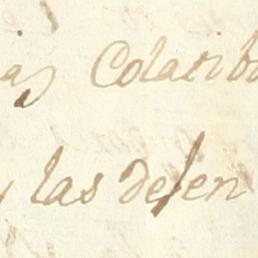 as Colatib
y las defen